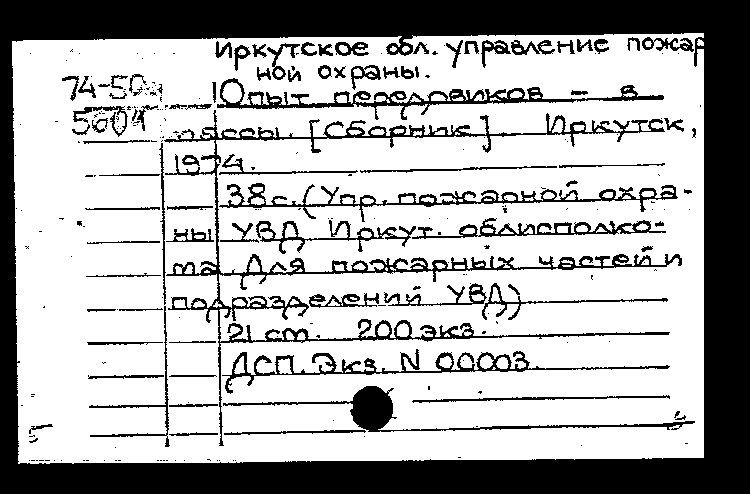 Иркутское обл. управление пожар
ной охраны.
74-50
5604
Опыт передовиков - в
массы. [Сборник]. Иркутск,
1974.
38с. (Упр. пожарной охра-
ны УВД Иркут. облисполко-
ма. Для пожарных частей и
подразделений УВД)
21 см. 200 экз.
ДСП. Экз. N 00003.
5